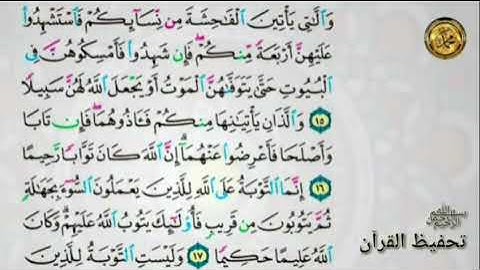 وَٱلَّٰتِي يَأۡتِينَ ٱلۡفَٰحِشَةَ مِن نِّسَآئِكُمۡ فَٱسۡتَشۡهِدُواْ
عَلَيۡهِنَّ أَرۡبَعَةٗ مِّنكُمۡۖ فَإِن شَهِدُواْ فَأَمۡسِكُوهُنَّ فِي
ٱلۡبُيُوتِ حَتَّىٰ يَتَوَفَّىٰهُنَّ ٱلۡمَوۡتُ أَوۡ يَجۡعَلَ ٱللَّهُ لَهُنَّ سَبِيلٗا
١٥ وَٱلَّذَانِ يَأۡتِيَٰنِهَا مِنكُمۡ فَـَٔاذُوهُمَاۖ فَإِن تَابَا
وَأَصۡلَحَا فَأَعۡرِضُواْ عَنۡهُمَآۗ إِنَّ ٱللَّهَ كَانَ تَوَّابٗا رَّحِيمًا
١٦ إِنَّمَا ٱلتَّوۡبَةُ عَلَى ٱللَّهِ لِلَّذِينَ يَعۡمَلُونَ ٱلسُّوٓءَ بِجَهَٰلَةٖ
ثُمَّ يَتُوبُونَ مِن قَرِيبٖ فَأُوْلَٰٓئِكَ يَتُوبُ ٱللَّهُ عَلَيۡهِمۡۗ وَكَانَ
ٱللَّهُ عَلِيمًا حَكِيمٗا ١٧ وَلَيۡسَتِ ٱلتَّوۡبَةُ لِلَّذِينَ
تحفيظ القرآن